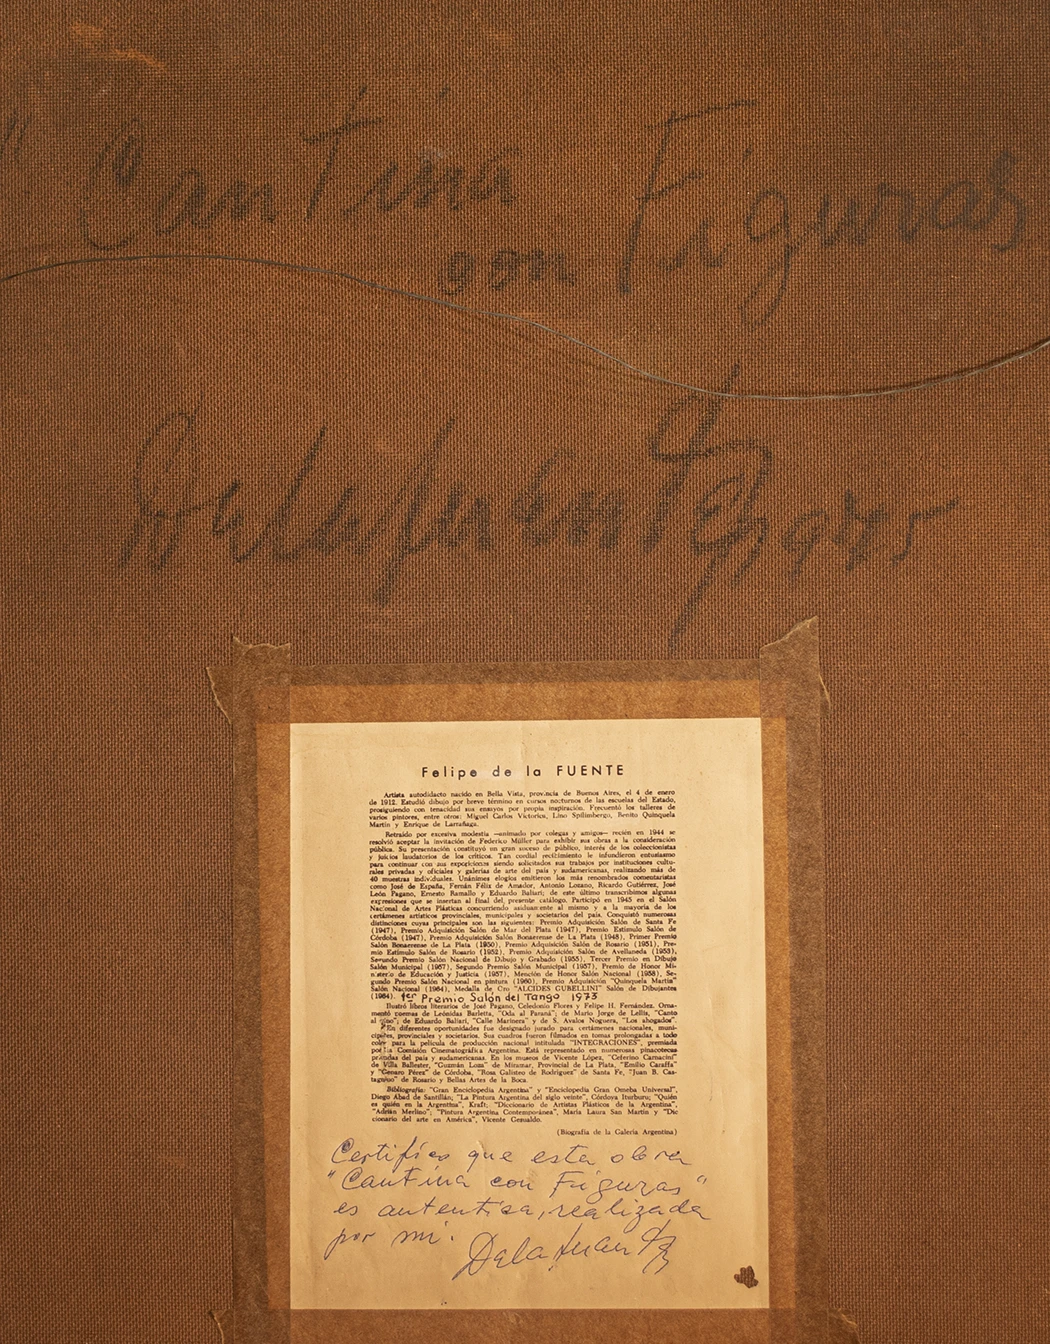 " Cantina
con Figuras
Delafuente 1975
Felipe de la FUENTE
Artista autodidacto nacido en Bella Vista, provincia de Buenos Aires, el 4 de enero
de 1912. Estudió dibujo por breve término en cursos nocturnos de las escuelas del Estado,
prosiguiendo con tenacidad sus ensayos por propia inspiración. Frecuentó los talleres de
varios pintores, entre otros: Miguel Carlos Victorica, Lino Spilimbergo, Benito Quinquela
Martín y Enrique de Larrañaga.
Retraído por excesiva modestia —animado por colegas y amigos— recién en 1944 se
resolvió aceptar la invitación de Federico Müller para exhibir sus obras a la consideración
pública. Su presentación constituyó un gran suceso de público, interés de los coleccionistas
y juicios laudatorios de los críticos. Tan cordial recibimiento le infundieron entusiasmo
para continuar con sus exposiciones siendo solicitados sus trabajos por instituciones cultu-
rales privadas y oficiales y galerías de arte del país y sudamericanas, realizando más de
40 muestras individuales. Unánimes elogios emitieron los más renombrados comentaristas
como José de España, Fernán Félix de Amador, Antonio Lozano, Ricardo Gutiérrez, José
León Pagano, Ernesto Ramallo y Eduardo Baliari; de este último transcribimos algunas
expresiones que se insertan al final del, presente catálogo. Participó en 1945 en el Salón
Nacional de Artes Plásticas concurriendo asiduamente al mismo y a la mayoría de los
certámenes artísticos provinciales, municipales y societarios del país. Conquistó numerosas
distinciones cuyas principales son las siguientes: Premio Adquisición Salón de Santa Fe
(1947), Premio Adquisición Salón de Mar del Plata (1947), Premio Estímulo Salón de
Córdoba (1947), Premio Adquisición Salón Bonaerense de La Plata (1948), Primer Premio
Salón Bonaerense de La Plata (1950), Premio Adquisición Salón de Rosario (1951), Pre-
mio Estímulo Salón de Rosario (1952), Premio Adquisición Salón de Avellaneda (1953),
Segundo Premio Salón Nacional de Dibujo y Grabado (1955), Tercer Premio en Dibujo
Salón Municipal (1957), Segundo Premio Salón Municipal (1957), Premio de Honor Mi-
nisterio de Educación y Justicia (1957), Mención de Honor Salón Nacional (1958), Se-
gundo Premio Salón Nacional en pintura (1960), Premio Adquisición "Quinquela Martín"
Salón Nacional (1964), Medalla de Oro "ALCIDES GUBELLINI" Salón de Dibujantes
(1964). 1er Premio Salón del Tango 1973
Ilustró libros literarios de José Pagano, Celedonio Flores y Felipe H. Fernández. Orna-
mentó poemas de Leónidas Barletta, "Oda al Paraná"; de Mario Jorge de Lellis, "Canto
al vino"; de Eduardo Baliari, "Calle Marinera" y de S. Avalos Noguera, "Los ahogados".
En diferentes oportunidades fue designado jurado para certámenes nacionales, muni-
cipales, provinciales y societarios. Sus cuadros fueron filmados en tomas prolongadas a todo
color para la película de producción nacional intitulada "INTEGRACIONES", premiada
por la Comisión Cinematográfica Argentina. Está representado en numerosas pinacotecas
privadas del país y sudamericanas. En los museos de Vicente López, "Ceferino Carnacini"
de Villa Ballester, "Guzmán Loza" de Miramar, Provincial de La Plata, "Emilio Caraffa"
y "Genaro Pérez" de Córdoba, "Rosa Galisteo de Rodríguez" de Santa Fe, "Juan B. Cas-
tagnino" de Rosario y Bellas Artes de la Boca.
Bibliografía: "Gran Enciclopedia Argentina" y "Enciclopedia Gran Omeba Universal",
Diego Abad de Santillán; "La Pintura Argentina del siglo veinte", Córdova Iturburu; "Quién
es quién en la Argentina", Kraft; "Diccionario de Artistas Plásticos de la Argentina",
"Adrián Merlino"; "Pintura Argentina Contemporánea", María Laura San Martín y "Dic
cionario del arte en América", Vicente Gesualdo.
(Biografía de la Galería Argentina)
Certifico que esta obra
"Cantina con Figuras"
es autentica, realizada
por mi. Delafuente